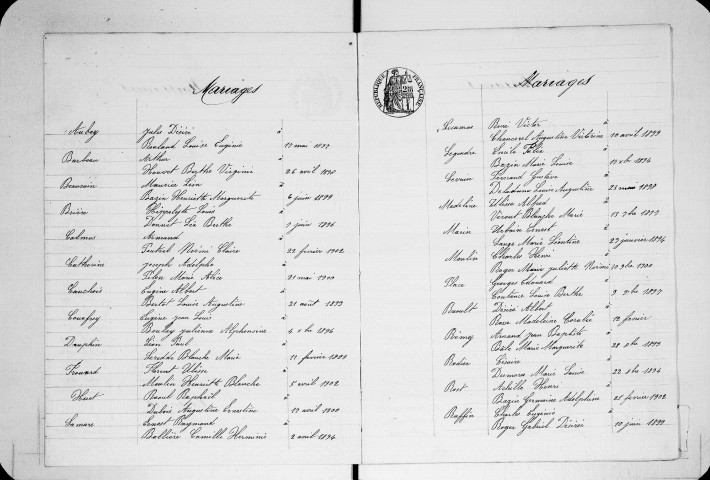 Mariages
Aubey Jules Désiré à
Renland Louise Eugénie 13 mai 1899
Barbeau Arthur à
Houvet Berthe Virginie 26 avril 1898
Beauvain Maurice Léon à
Bazin Henriette Marguerite 6 juin 1899
Brière Hippolyte Louis à
Donnet Léa Berthe 9 juin 1896
Calmus Armand à
Toutral Noémi Claire 22 février 1902
Catherine Joseph Adolphe à
Filon Marie Alice 21 mai 1900
Cauchois Eugène Albert à
Bertot Louise Augustine 21 août 1893
Couefrey Eugène Jean Louis à
Doulley Julienne Alphonsine 4 xbre 1896
Dauphin Léon Paul à
Blanche Marie 11 février 1899
Frouard Florent Ulisse à
Moulin Henriette Blanche 5 avril 1902
Huet Raoul Raphaël à
Dubois Augustine Ernestine 17 avril 1900
Lamare Ernest Raymond à
Ballière Camille Herminie 2 avril 1894
RÉPUBLIQUE FRANÇAISE
Mariages
Lecarme René Victor à
Chancerel Augustine Victorine 10 avril 1899
Legendre Émile Félix à
Bazin Marie Louise 15 xbre 1894
Levrain Fernand Gustave à
Louise Augustine 28 mai 1898
Madeline Ulisse Alfred à
Vérout Blanche Marie 13 7bre 1893
Marin Urbain Ernest à
Lange Marie Léontine 23 janvier 1894
Moulin Charles Henri à
Roger Marie Juliette Noémi 20 9bre 1900
Place Georges Edouard à
Coutance Louise Berthe 9 9bre 1897
Rault Désiré Albert à
Rave Madeleine Coralie 12 février
Rémy Armand Jean Baptiste à
Bale Marie Marguerite 28 8bre 1893
Rodier Césaire à
Desmares Marie Louise 22 8bre 1894
Rost Achille Henri à
Bazin Germaine Adelphine 25 février 1902
Ruffin Charles Eugène à
Roger Gabriel Désirée 10 juin 1899